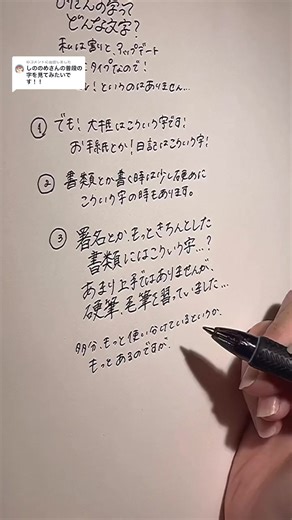 どんな文字?
私は割と、アップデート
タイプなので!
というのはありません…
しののめさんの普段の
字を見てみたいで
す!!
① でも!大半はこういう字です!
お手紙とか!日記はこういう字!
② 書類とか書く時は少し硬めに
こういう字の時もあります。
③ 署名とか、もっときちんとした
書類にはこういう字…?
あまり上手ではありませんが、
硬筆、毛筆を習っていました…
多分、もっと使い分けているというか、
もっとあるのですが、